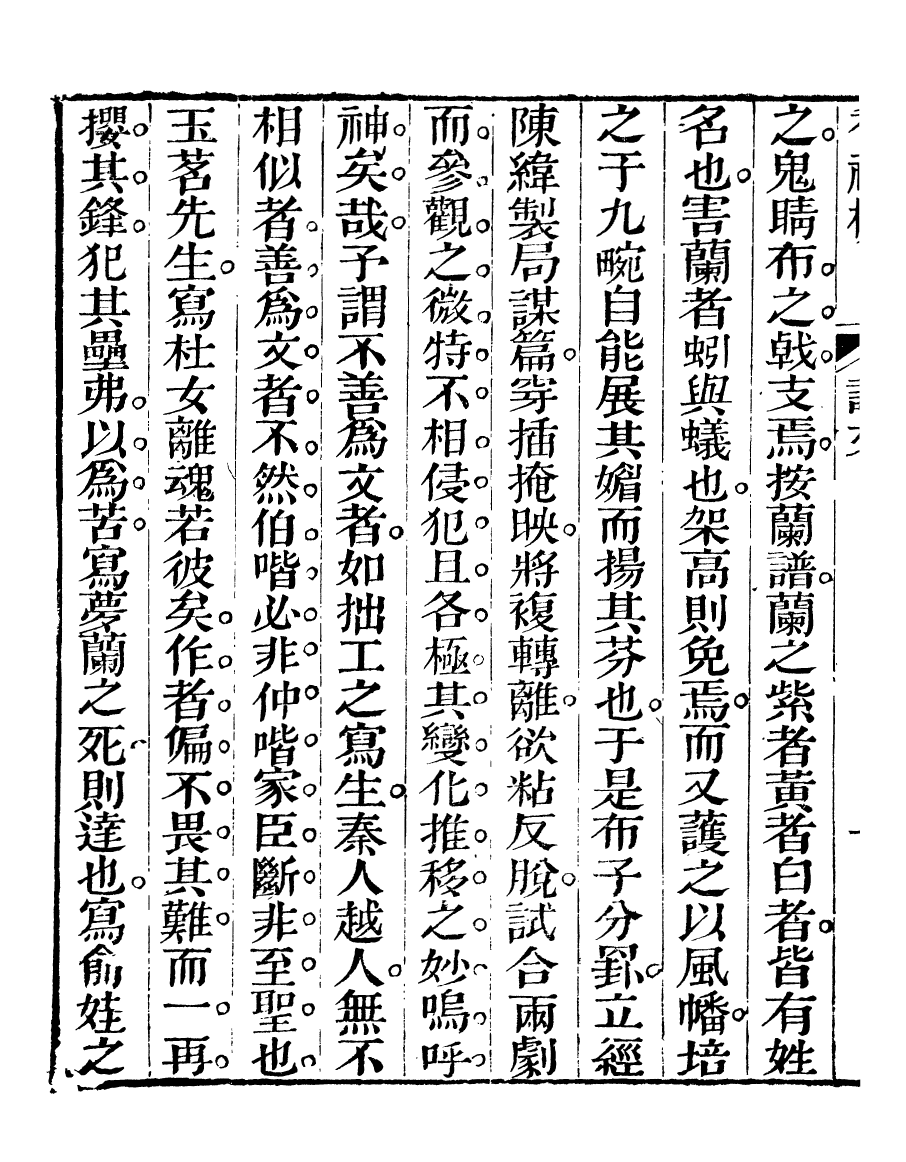 之鬼晴布之戟支焉按蘭譜蘭之紫者黃者白者皆有姓
名也害蘭者蚓與蟻也架高則免焉而又護之以風幡培
之于九畹自能展其媚而揚其芬也于是布子分罫立經
陳緯製局謀篇穿插掩映將複轉離欲粘反脫試合兩劇
而參觀之微特不相侵犯且各極其變化推移之妙嗚呼
神矣哉予謂不善為文者如拙工之寫生秦人越人無不
相似者善為文者不然伯喈必非仲喈家臣斷非至聖也
玉茗先生寫杜女離魂若彼矣作者偏不畏其難而一再
攖其鋒犯其壘弗以為苦寫夢蘭之死則達也寫俞娃之